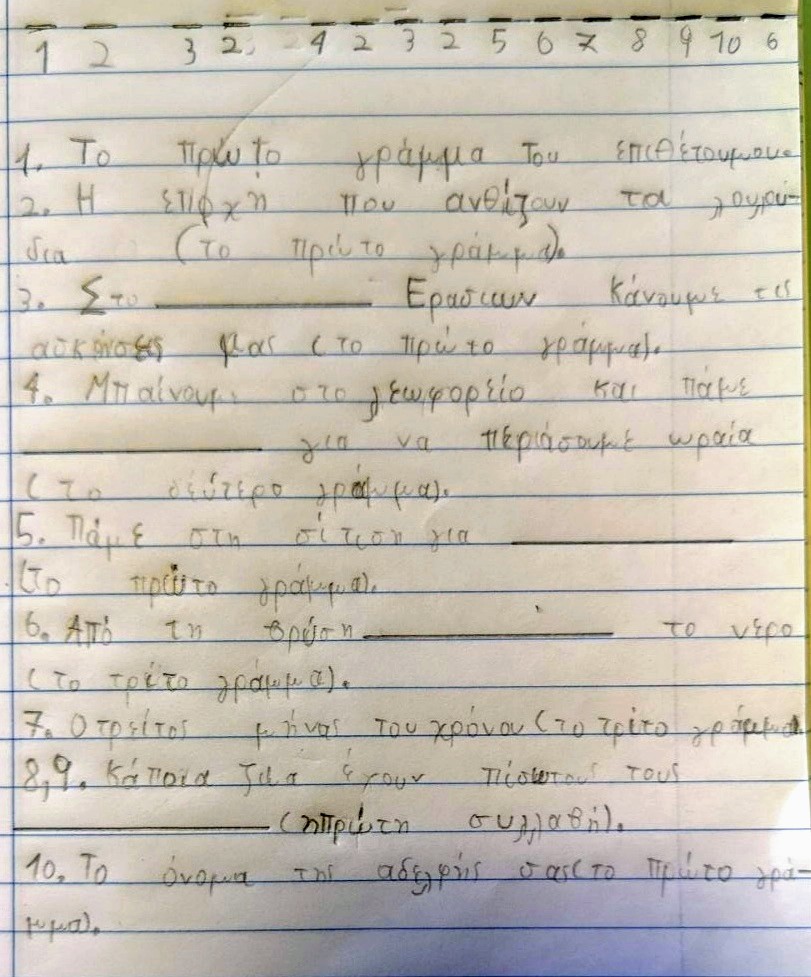 1 2 3 2 4 2 3 2 5 6 7 8 9 10 6
1. Το πρώτο γράμμα του επιθέτουμου.
2. Η επόχη που ανθίζουν τα λουλού-
δια (το πρώτο γράμμα).
3. Στο Ερασιων κάνουμε τις
ασκήσεις μας (το πρώτο γράμμα).
4. Μπαίνουμε στο λεωφορείο και πάμε
για να περιάσουμε ωραία
(το δεύτερο γράμμα).
5. Πάμε στη σίτιση για
(το πρώτο γράμμα).
6. Από τη βρύση το νερο
(το τρίτο γράμμα).
7. Ο τρείτος μήνας του χρόνου (το τρίτο γράμμα
8,9. Κάποια ζωα έχουν πίσωτους τους
(ηπρώτη συλλαβή).
10. Το όνομα της αδελφής σας(το πρώτο γρά-
μμα).